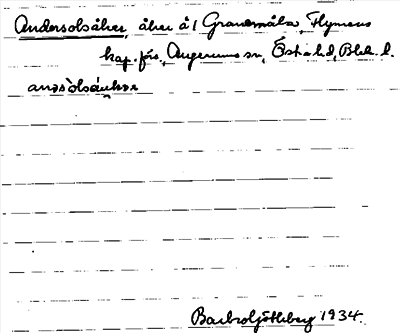 Andersolsåker, åker å 1 Granemåla, Flymens
kap.förs., Augerums sn, Östra hd, Blek. l.
Barbro Götlberg 1934.